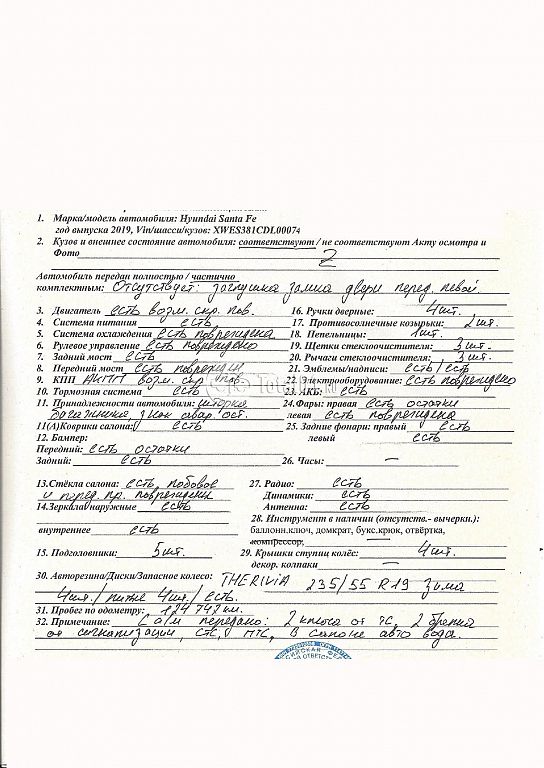 1. Марка/модель автомобиля: Hyundai Santa Fe
год выпуска 2019, Vin/шасси/кузов: XWES381CDL00074
2. Кузов и внешнее состояние автомобиля: соответствуют / не соответствуют Акту осмотра и
Фото 2
Автомобиль передан полностью / частично
комплектным: Отсутствует: заглушка замка двери перед. левой.
3. Двигатель есть возм. скр. пов.
4. Система питания есть
5. Система охлаждения есть повреждена
6. Рулевое управление есть повреждено
7. Задний мост есть
8. Передний мост есть поврежден
9. КПП АКПП возм. скр. пов
10. Тормозная система есть
11. Принадлежности автомобиля: шторка
багажника, знак авар. ост.
11(А)Коврики салона: есть
12. Бампер:
Передний: есть остатки
Задний: есть
13.Стёкла салона: есть, лобовое
и перед. пр. повреждены
14.Зеркала наружные есть
внутреннее есть
15. Подголовники: 5 шт.
16. Ручки дверные: 4 шт.
17. Противосолнечные козырьки: 2 шт.
18. Пепельницы: 1 шт.
19. Щетки стеклоочистителя: 3 шт.
20. Рычаги стеклоочистителя: 3 шт.
21. Эмблемы/надписи: есть / есть
22. Электрооборудование: есть повреждено
23. АКБ: есть
24.Фары: правая есть остатки
левая есть повреждена
25. Задние фонари: правый есть
левый есть
26. Часы: —
27. Радио: есть
Динамики: есть
Антенна: есть
28. Инструмент в наличии (отсутств.- вычеркн.):
баллонн.ключ, домкрат, букс.крюк, отвёртка,
компрессор,
29. Крышки ступиц колёс: 4 шт.
декор. колпаки —
30. Авторезина/Диски/Запасное колесо: THERIVIA 235/55 R19 зима
4 шт. / литые 4 шт. / есть.
31. Пробег по одометру: 124 742 км.
32. Примечание: С а/м передано: 2 ключа от ТС, 2 брелка
от сигнализации, СТС, ПТС, в салоне авто вода.